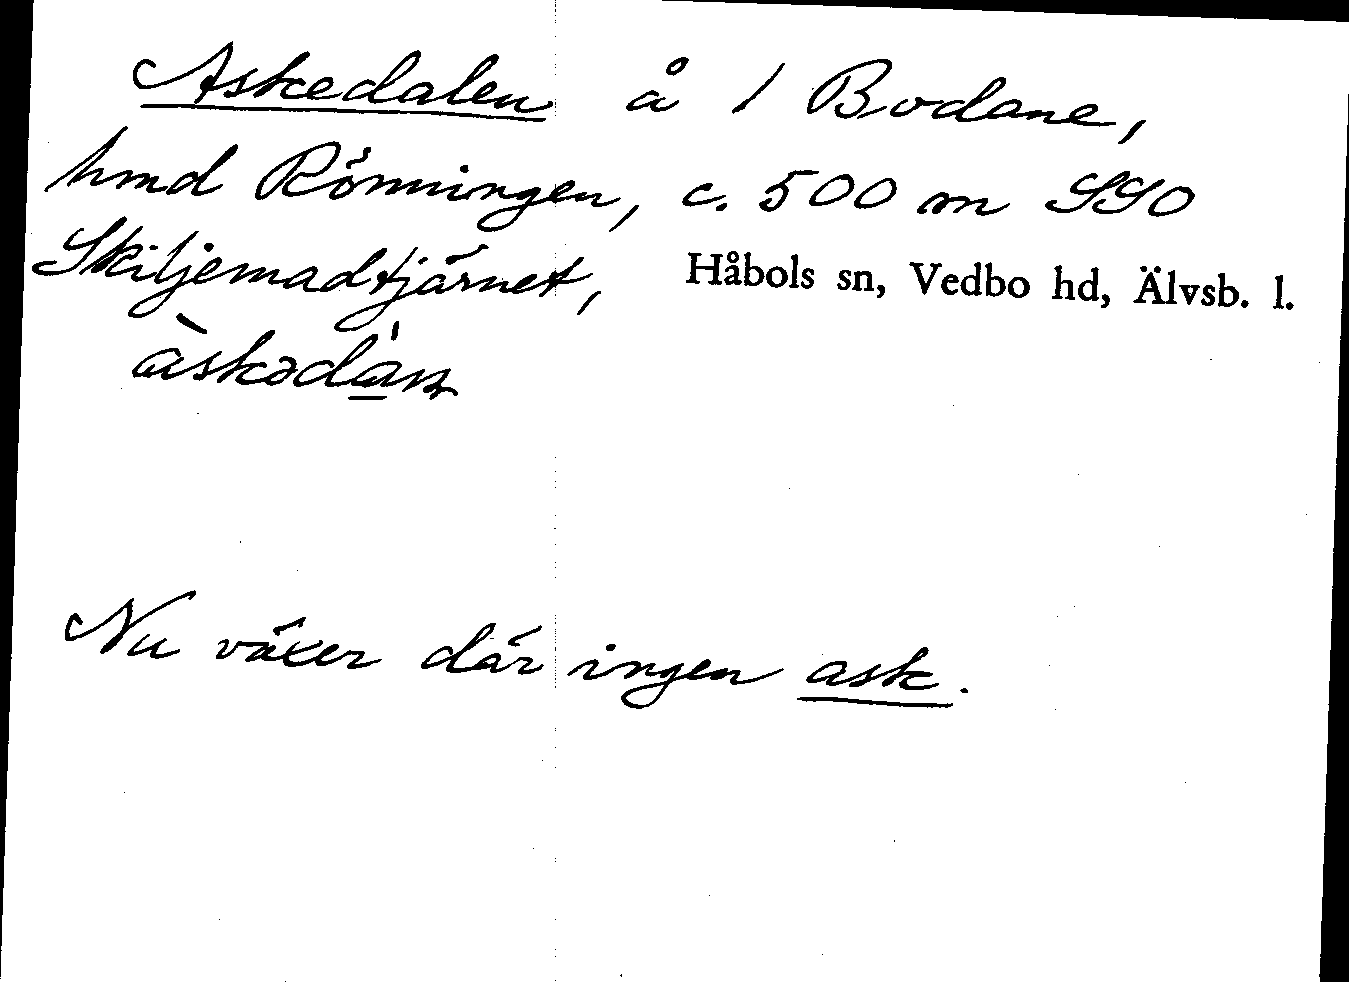 Askedalen å 1 Bodane,
hmd Rönningen, c. 500 m SSO
Skiljemadtjärnet, Håbols sn, Vedbo hd, Älvsb. l.
àskədán
Nu växer där ingen ask.